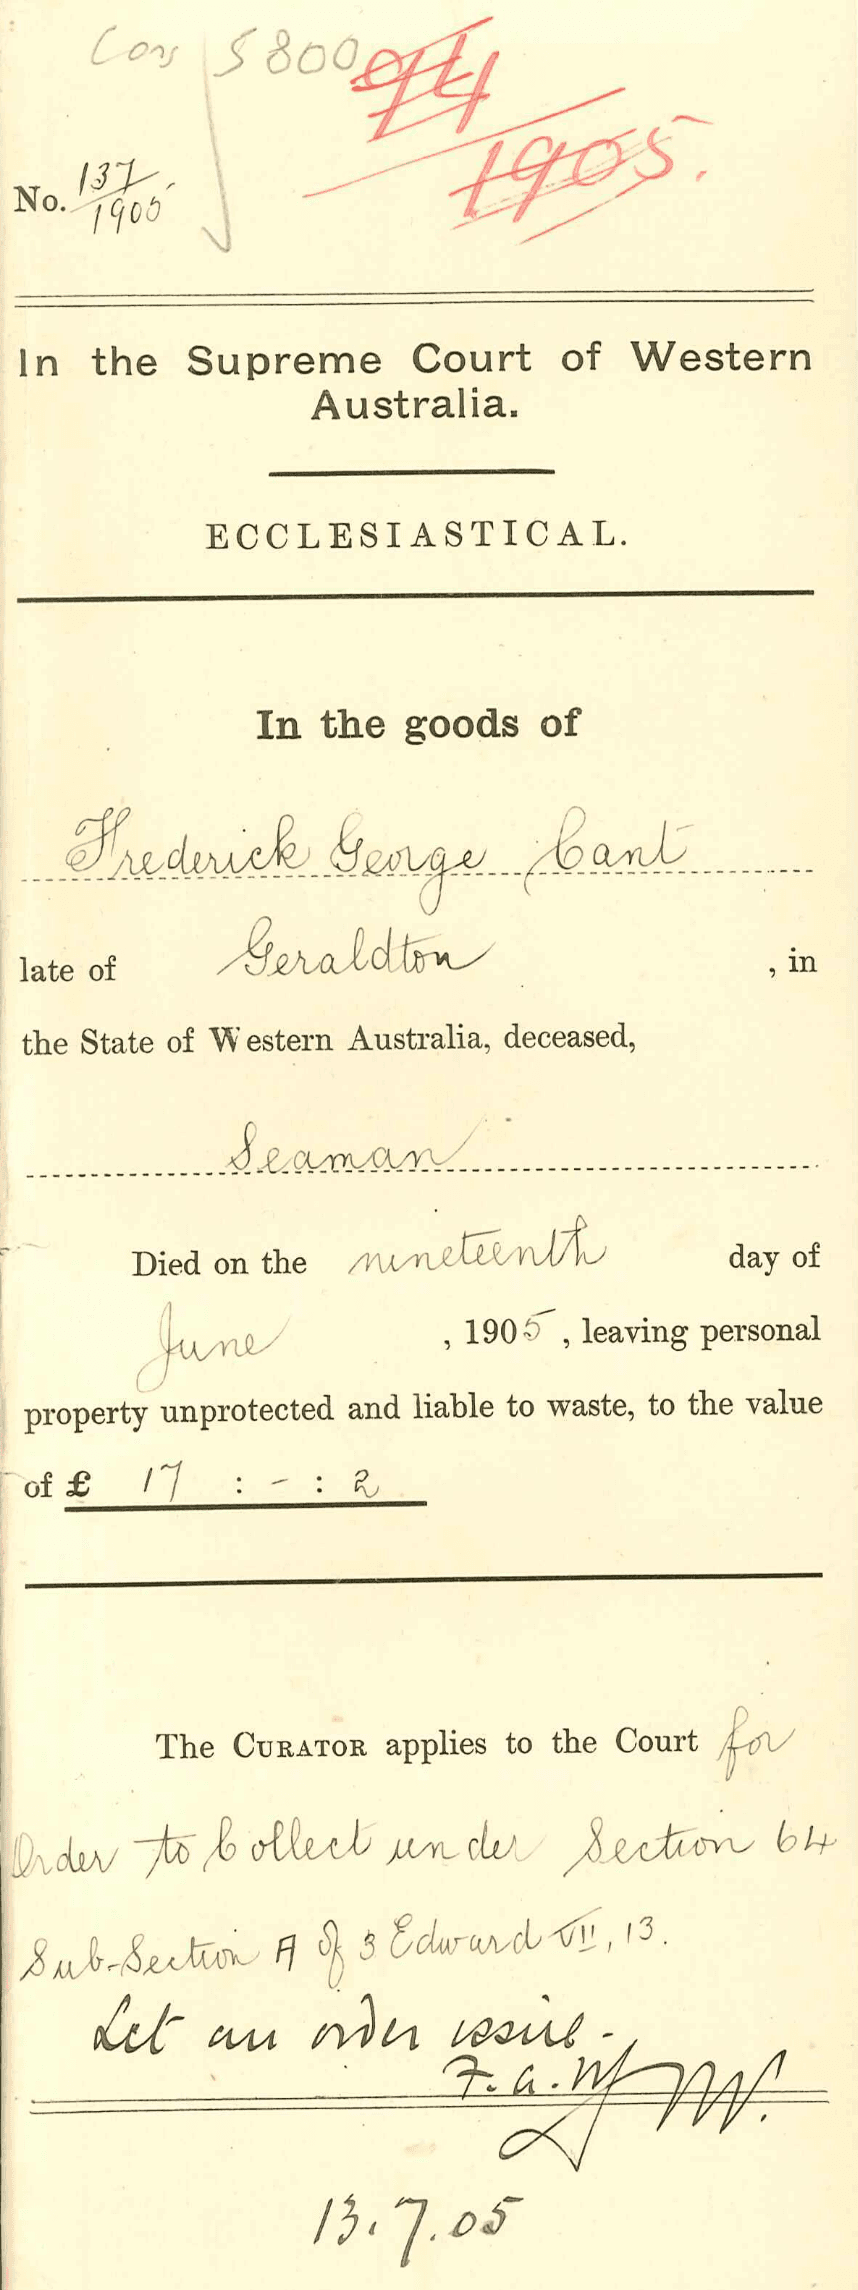 Cons 5800
94
1905.
No. 137
1905
In the Supreme Court of Western
Australia.
ECCLESIASTICAL.
In the goods of
Frederick George Cant
late of Geraldton , in
the State of Western Australia, deceased,
Seaman
Died on the nineteenth day of
June , 1905 , leaving personal
property unprotected and liable to waste, to the value
of £ 17 : - : 2
The CURATOR applies to the Court for
Order to Collect under Section 64
Sub-Section A of 3 Edward VII, 13.
Let an order issue -
F. A.
13.7.05